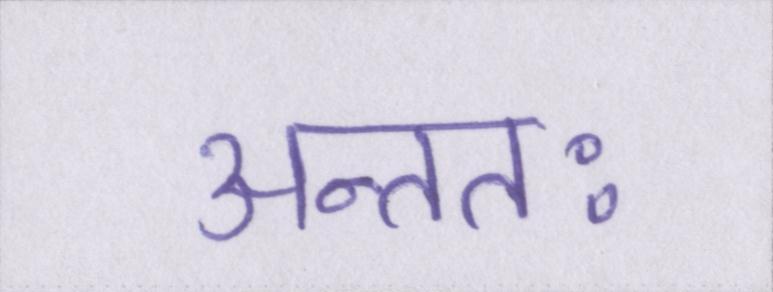 अन्ततः